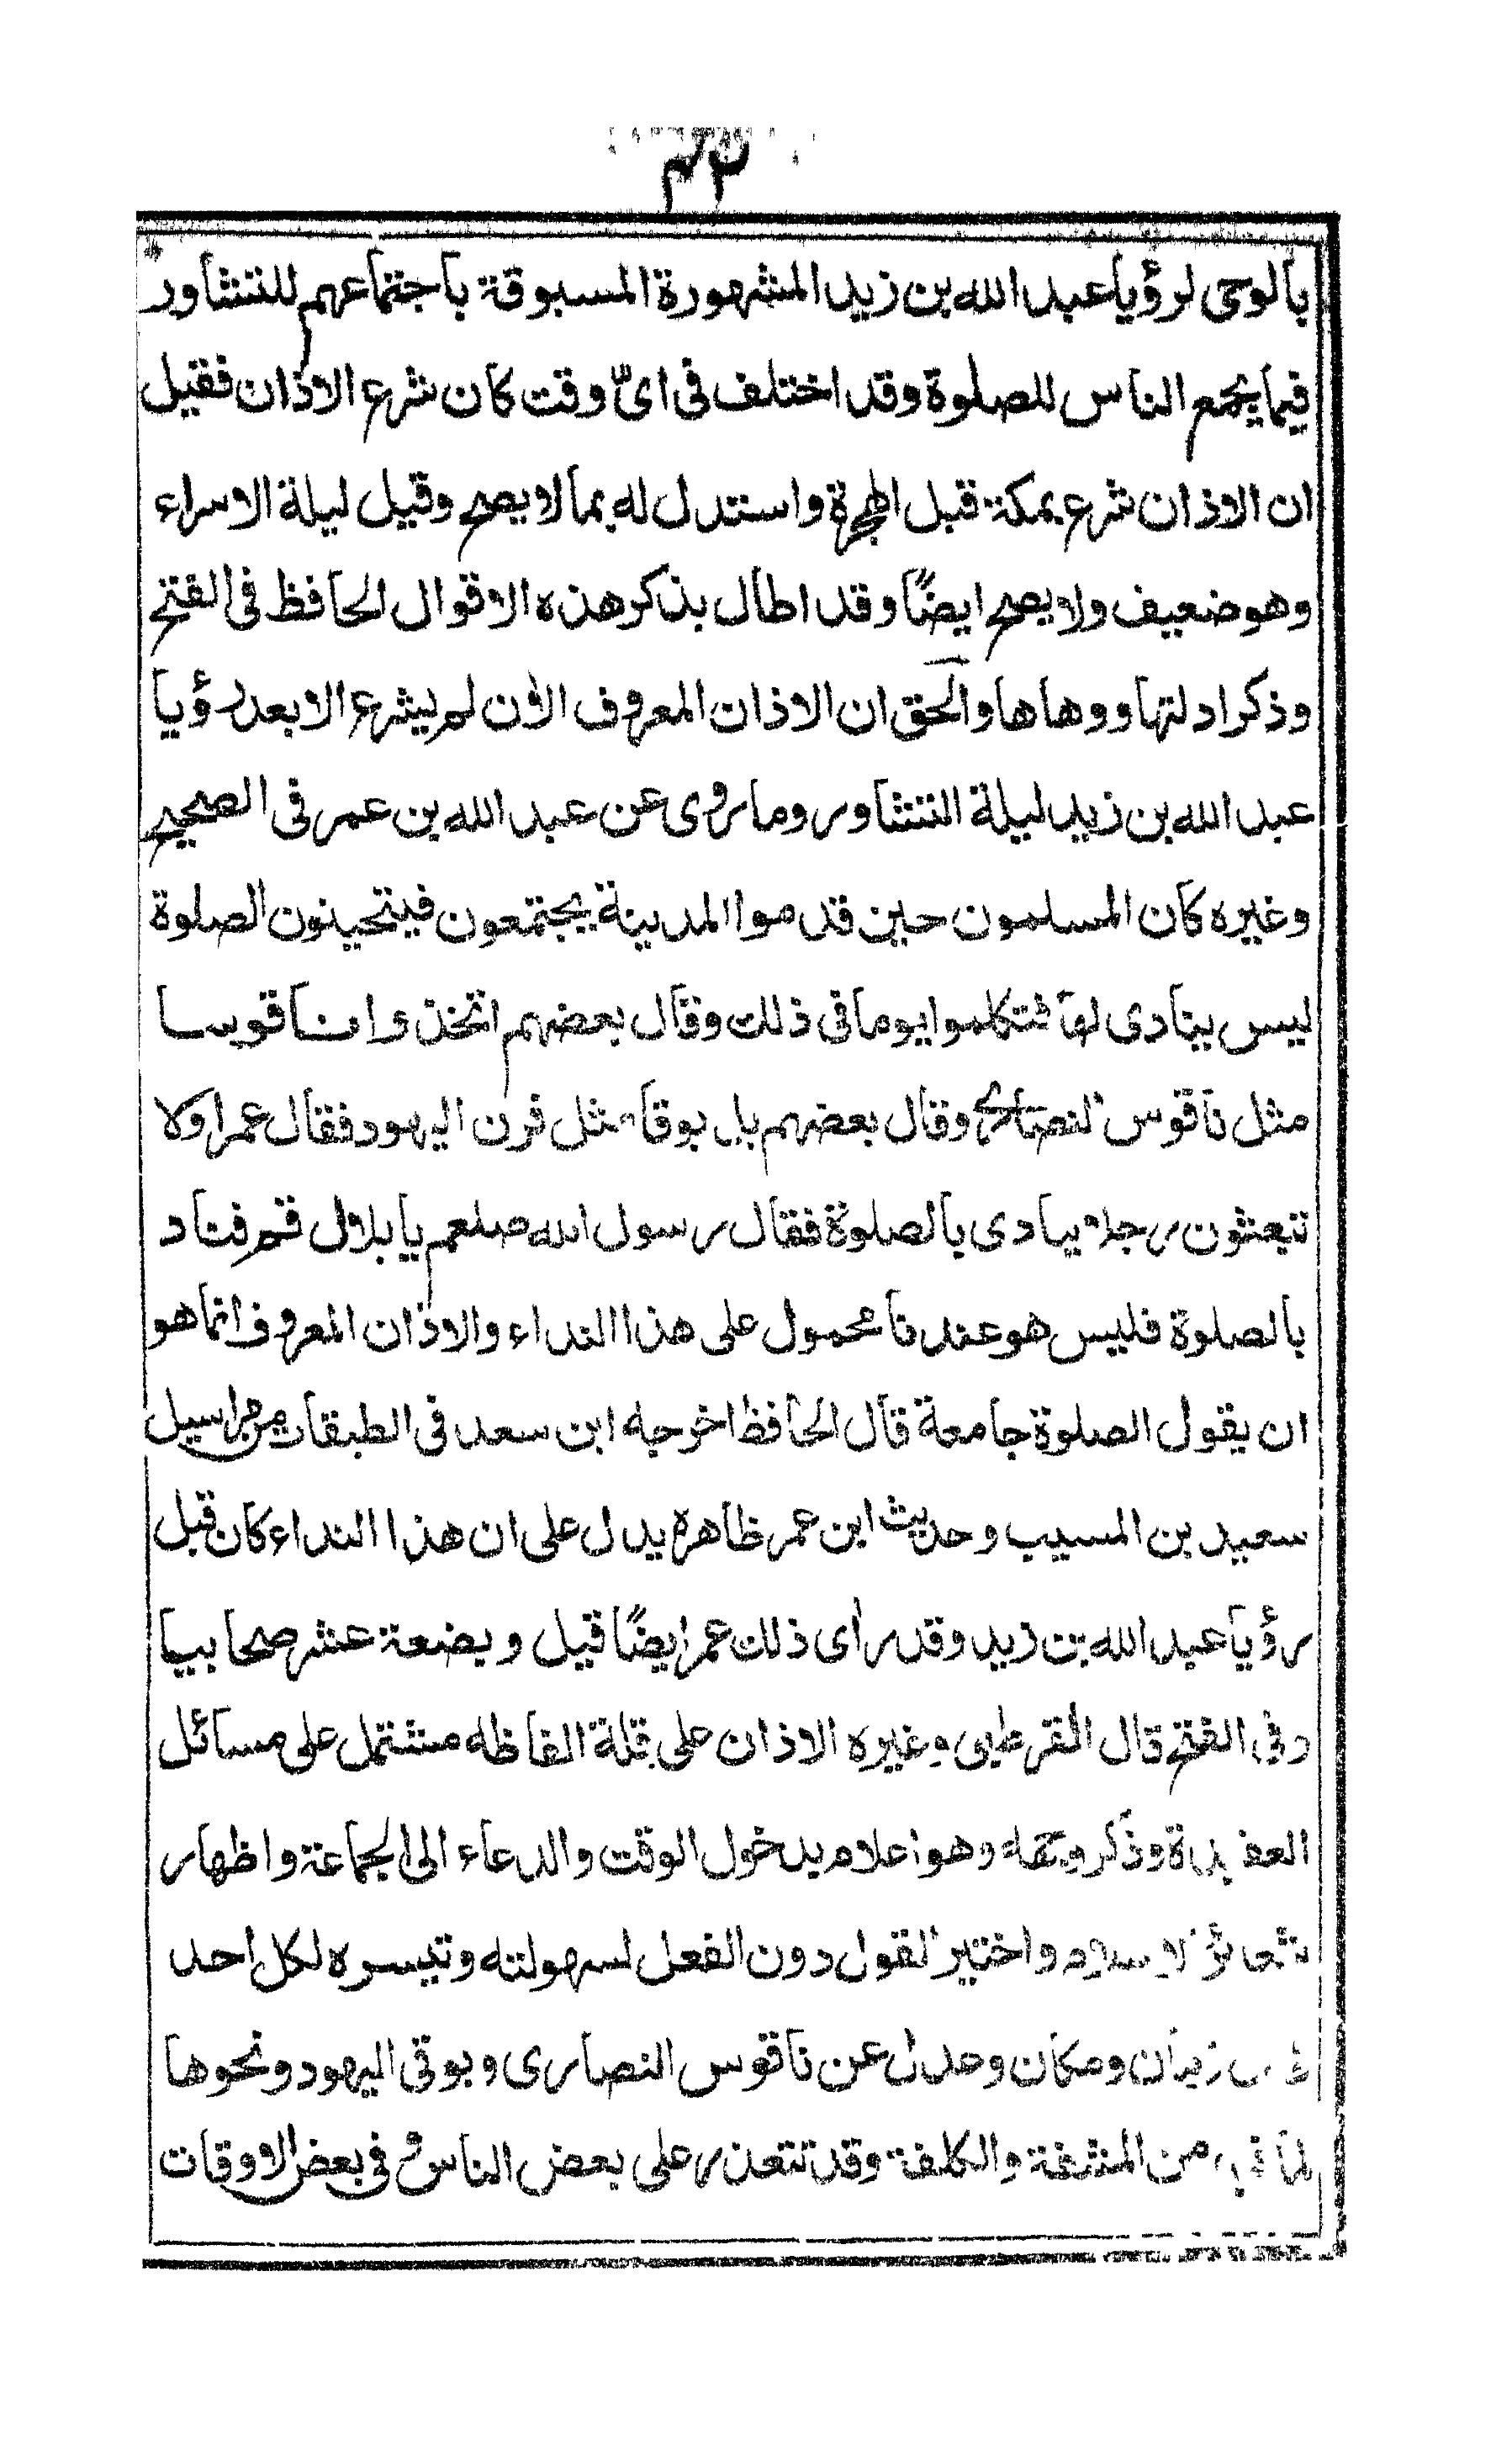 بالوحى لرؤيا عبد الله بن زيد المشهورة المسبوقة باجتماعهم للتشاور
فيما يجمع الناس للصلوة وقد اختلف فى اىّ وقت كان شرع الاذان فقيل
ان الاذان شرع بمكة قبل الهجرة واستدل له بما لا يصح وقيل ليلة الاسراء
وهو ضعيف ولا يصح ايضًا وقد اطال بذكر هذه الاقوال الحافظ فى الفتح
وذكر ادلتها ووهاها والحق ان الاذان المعروف الاٰن لم يشرع الا بعد رؤيا
عبد الله بن زيد ليلة التشاور وما روى عن عبد الله بن عمر فى الصحيح
وغيره كان المسلمون حين قدموا المدينة يجتمعون فيتحينون الصلوة
ليس ينادى لها فتكلموا يوما فى ذلك وقال بعضهم اتخذوا ناقوسا
مثل ناقوس النصارى وقال بعضهم بل بوقا مثل قرن اليهود فقال عمر اولا
تبعثون رجلا ينادى بالصلوة فقال رسول الله صلعم يا بلال قم فناد
بالصلوة فليس هو عندنا محمول على هذا النداء والاذان المعروف انما هو
ان يقول الصلوة جامعة قال الحافظ اخرجه ابن سعد فى الطبقات من مراسيل
سعيد بن المسيب وحديث ابن عمر ظاهره يدل على ان هذا النداء كان قبل
رؤيا عبد الله بن زيد وقد رأى ذلك عمر ايضًا قيل وبضعة عشر صحابيا
وفى الفتح قال القرطبى وغيره الاذان على قلة الفاظه مشتمل على مسائل
العقيدة وذكر وجهه وهو اعلام بدخول الوقت والدعاء الى الجماعة واظهار
شعائر الاسلام واختير القول دون الفعل لسهولته وتيسره لكل احد
زمان ومكان وعدل عن ناقوس النصارى وبوق اليهود ونحوها
لما فيه من المشقة والكلفة وقد تتعذر على بعض الناس و فى بعض الاوقات